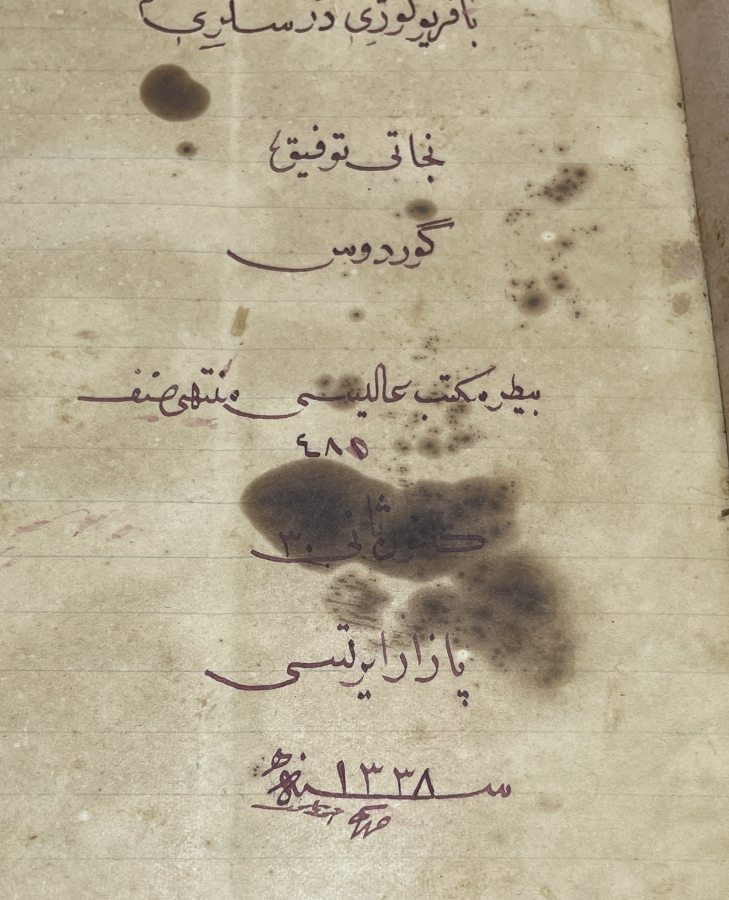 باقريولوژی درسلری
نجاتی توفيق
گوردوس
بيطره مكتب عاليسی منتهی صنف
٤٨٥
كانون ثانی ٣٠
پازار ايرتسی
سنه ١٣٣٨